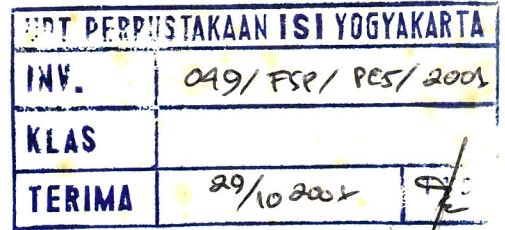 UPT PERPUSTAKAAN ISI YOGYAKARTA
INV. 049/ FSP/ PES/
KLAS
TERIMA 29/10